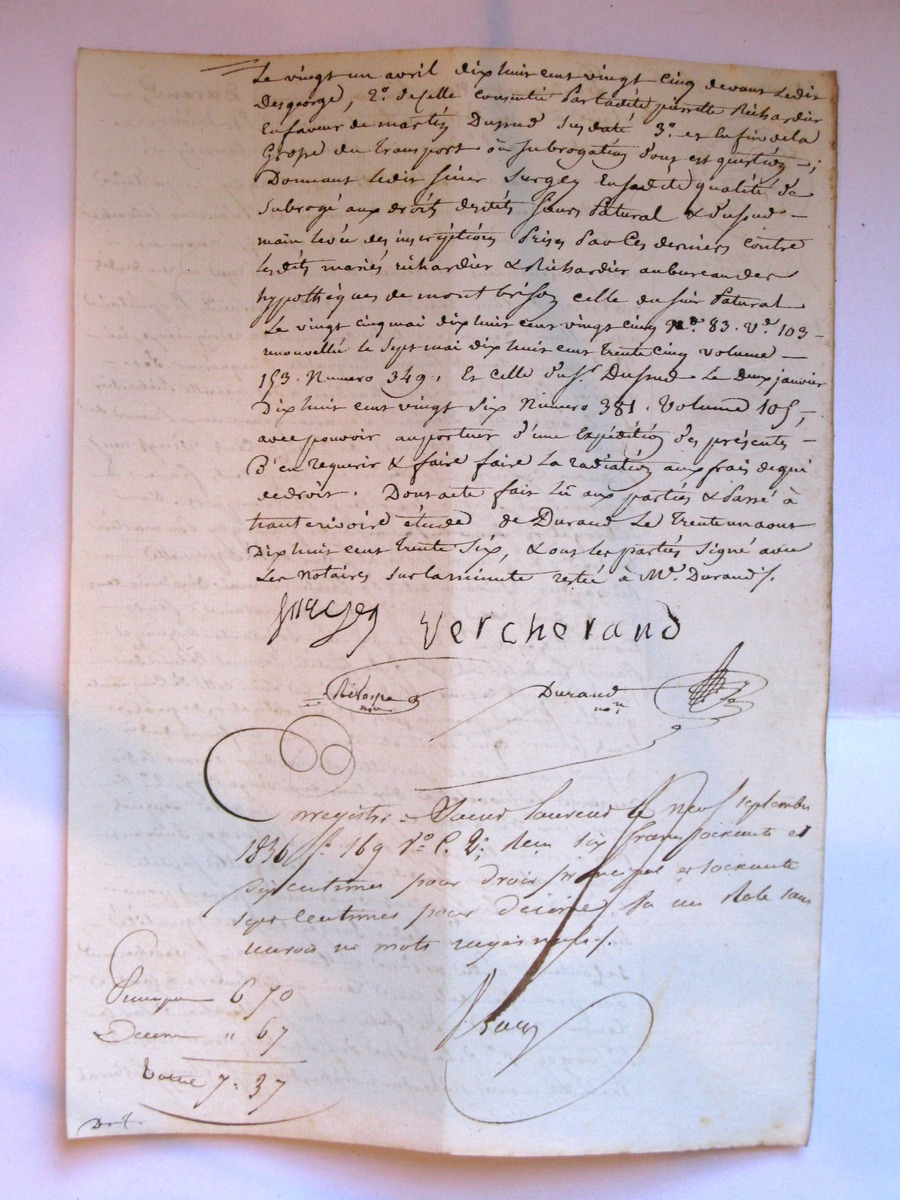 Le vingt un avril dix huit cent vingt cinq devant ledit
Desgeorge, 2º. de celle consentie par ladite pierrette Richardier
en faveur de martin Dupud susdaté 3º. et Enfin de la
Grosse du transport ou subrogation dont est question –;
Donnant ledit sieur Surgey En sadite qualité de
subrogé aux droits desdits sieurs Patural & dupud –
main levée des inscriptions prises par Ces derniers contre
lesdits mariés richardier & Richardier au bureau des
hypothèques de montbrison celle du sieur Patural
Le vingt cinq mai dix huit cent vingt cinq Nº. 83. Vº. 103 –
renouvellée le sept mai dix huit cent trente cinq volume –
153. Numero 349. Et celle du Sr. Dupud Le Deux janvier
Dix huit cent vingt six Numero 381. Volume 105, –
avec pouvoir au porteur d'une Expédition des présentes –
D'en requerir & faire faire La radiation aux frais de qui
de droit. Dont acte fait Lu aux parties & Passé à
hauterivoire étude de Durand Le Trente un aout
Dix huit cent trente six, & ont les parties signé avec
Les Notaires sur la minute restée à Me. Durand /.
Surgey Vercherand
Durand
nre
Enregistré à Saint Laurent le neuf septembre
1836 fº. 169 Vº. C. 2; Reçu six francs soixante et
dix centimes pour droit principal et soixante
sept Centimes pour décime, sa un Role sans
renvoi ni mots rayés nuls /.
Principal 6 70
Decime " 67
Total 7 = 37